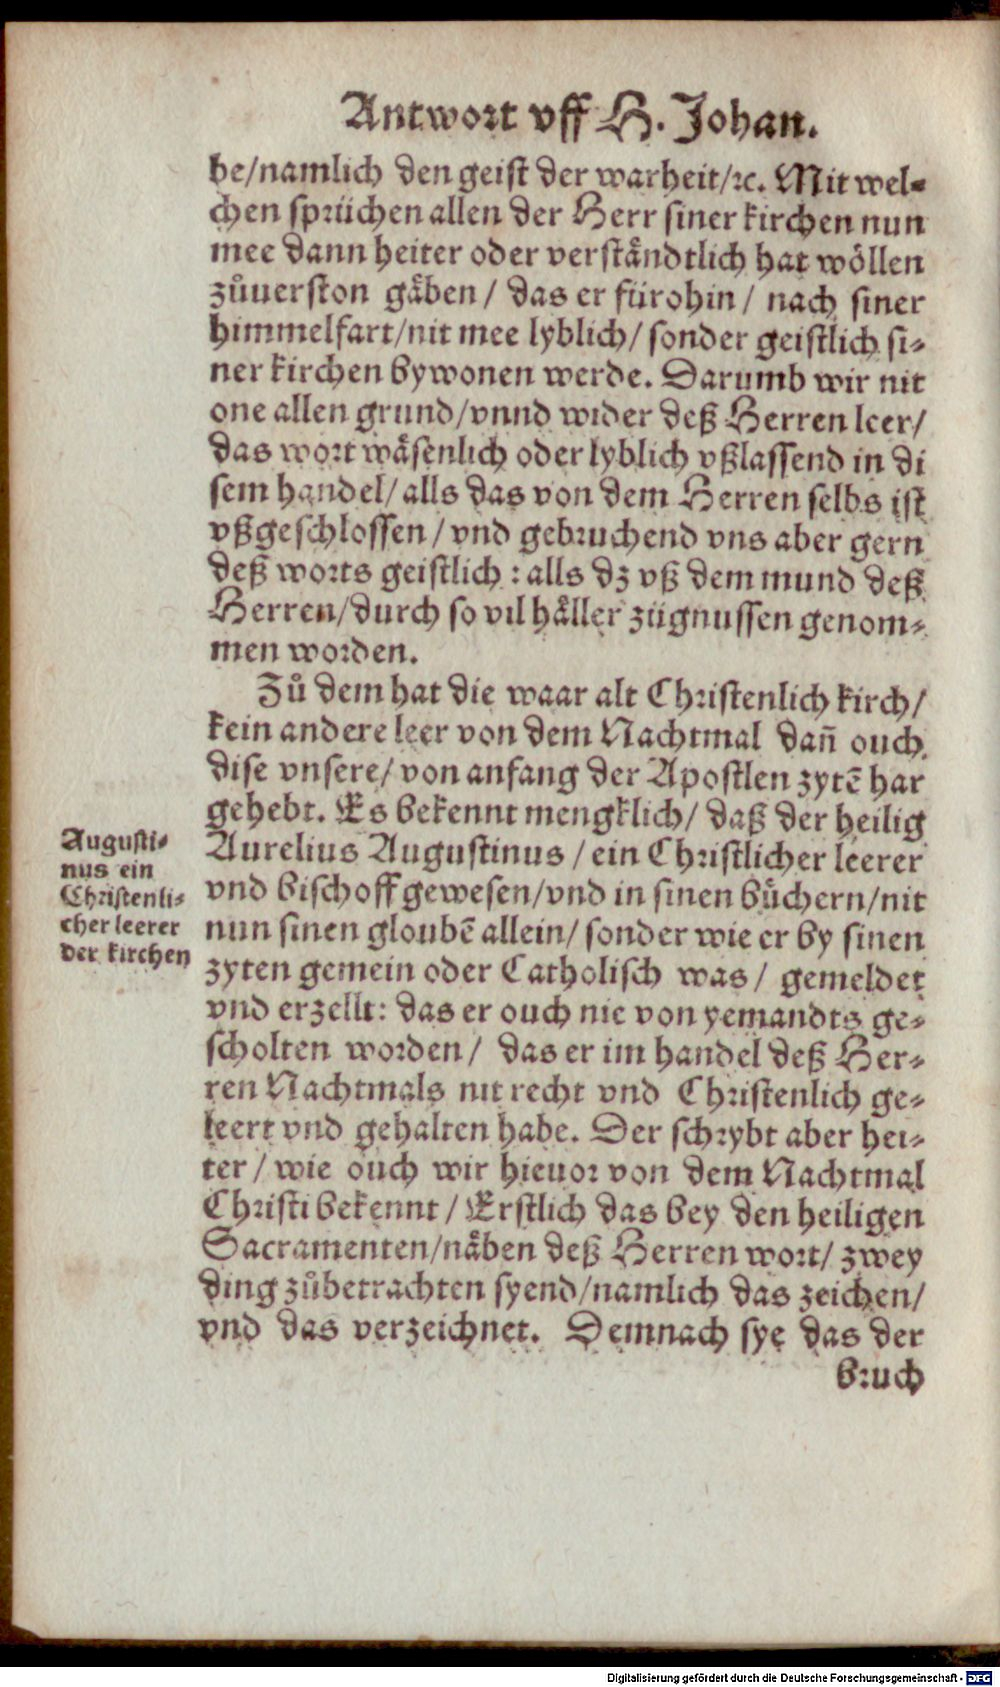 Antwort vff H. Johan.
be/namlich den geist der warheit/ꝛc. Mit wel⸗
chen sprüchen allen der Herr siner kirchen nun
mee dann heiter oder verständtlich hat wöllen
zůuerston gäben / das er fürohin / nach siner
himmelfart/nit mee lyblich/ sonder geistlich si⸗
ner kirchen bywonen werde. Darumb wir nit
one allen grund/vnnd wider deß Herren leer/
das wort wäsenlich oder lyblich vßlassend in di
sem handel/ alls das von dem Herren selbs ist
vßgeschlossen / vnd gebruchend vns aber gern
deß worts geistlich : alls dz vß dem mund deß
Herren/durch so vil häller zügnussen genom⸗
men worden.
Zů dem hat die waar alt Christenlich kirch/
kein andere leer von dem Nachtmal dañ ouch
dise vnsere/ von anfang der Apostlen zytē har
gehebt. Es bekennt mengklich/ daß der heilig
Aurelius Augustinus / ein Christlicher leerer
vnd bischoff gewesen/vnd in sinen bůchern/nit
nun sinen gloubē allein/ sonder wie er by sinen
zyten gemein oder Catholisch was/ gemeldet
vnd erzellt: das er ouch nie von yemandts ge⸗
scholten worden/ das er im handel deß Her⸗
ren Nachtmals nit recht vnd Christenlich ge⸗
leert vnd gehalten habe. Der schrybt aber hei⸗
ter / wie ouch wir hieuor von dem Nachtmal
Christi bekennt / Erstlich das bey den heiligen
Sacramenten/näben deß Herren wort/ zwey
ding zůbetrachten syend/namlich das zeichen/
vnd das verzeichnet. Demnach sye das der
bruch
Augusti⸗
nus ein
Christenli⸗
cher leerer
der kirchen
Digitalisierung gefördert durch die Deutsche Forschungsgemeinschaft - DFG